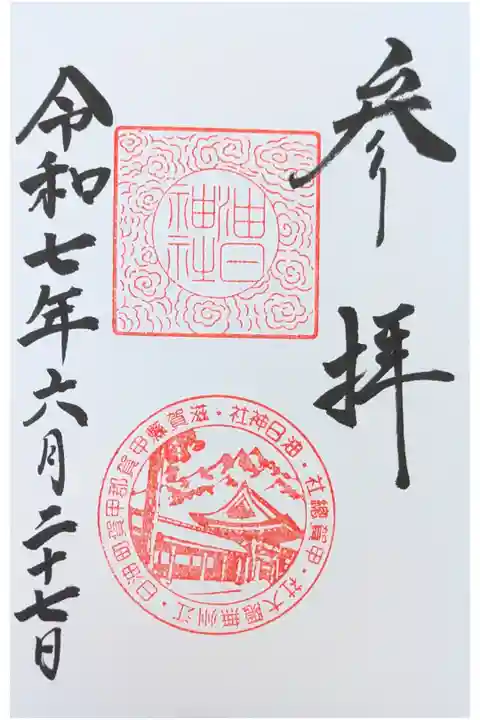 参拝
油日神社
油日神社・滋賀縣甲賀郡甲賀町油日・江州無隱大社・甲賀總社
令和七年六月二十七日